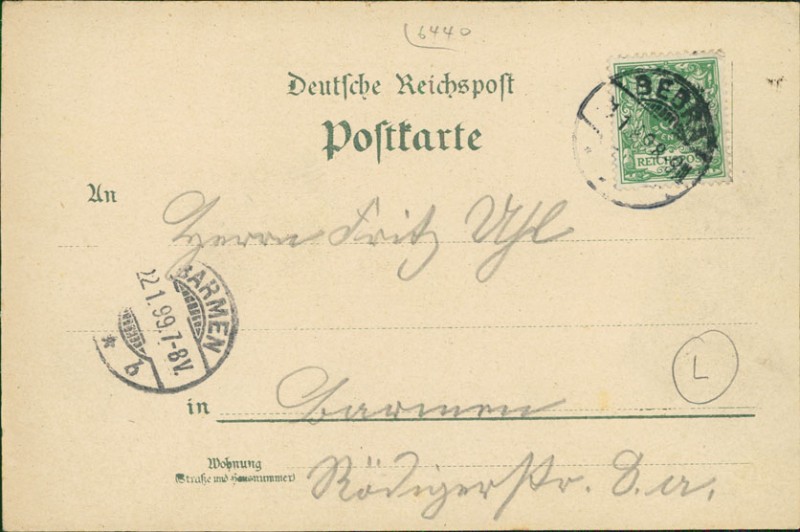 6440
Deutsche Reichspost
Postkarte
BEBRA
REICHSPOST
An
Herrn Fritz Uhl
BARMEN
22.1.99.7-8V.
* b
L
in Barmen
Wohnung
(Straße und Hausnummer)
Rödigerstr. 8.a.